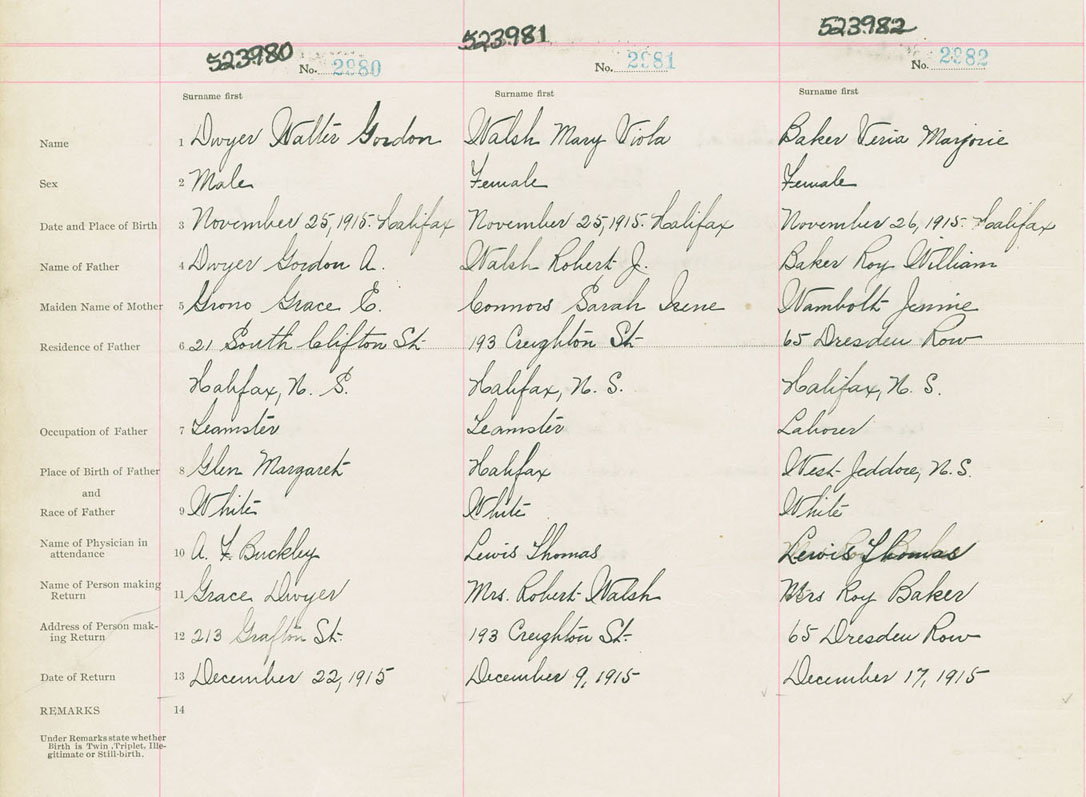 523980 523981 523982
No. 2980 No. 2981 No. 2982
Surname first Surname first Surname first
Name 1 Dwyer Walter Gordon Walsh Mary Viola Baker Veria Marjorie
Sex 2 Male Female Female
Date and Place of Birth 3 November 25, 1915. Halifax November 25, 1915. Halifax November 26, 1915. Halifax
Name of Father 4 Dwyer Gordon A. Walsh Robert J. Baker Roy William
Maiden Name of Mother 5 Grono Grace E. Connors Sarah Irene Wambolt Jennie
Residence of Father 6 21 South Clifton St. 193 Creighton St. 65 Dresden Row
Halifax, N. S. Halifax, N. S. Halifax, N. S.
Occupation of Father 7 Teamster Teamster Laborer
Place of Birth of Father 8 Glen Margaret Halifax West Jeddore, N.S.
and
Race of Father 9 White White White
Name of Physician in
attendance 10 A. F. Buckley Lewis Thomas Lewis Thomas
Name of Person making
Return 11 Grace Dwyer Mrs. Robert Walsh Mrs Roy Baker
Address of Person mak-
ing Return 12 213 Grafton St. 193 Creighton St. 65 Dresden Row
Date of Return 13 December 22, 1915 December 9, 1915 December 17, 1915
REMARKS 14
Under Remarks state whether
Birth is Twin, Triplet, Ille-
gitimate or Still-birth.